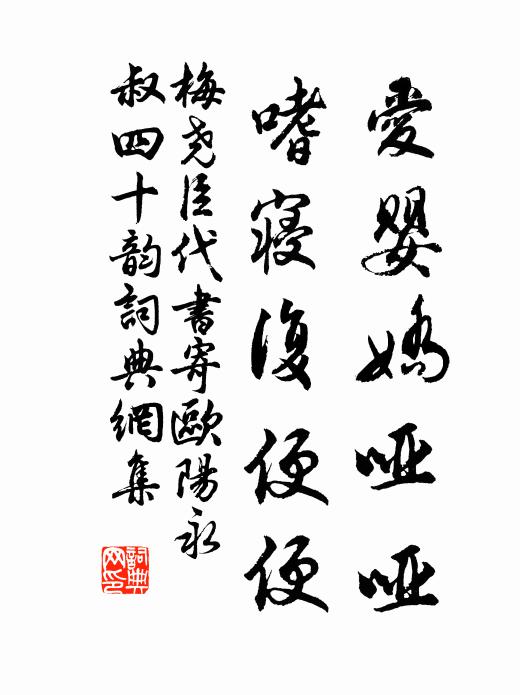 愛嬰嬌啞啞
嗜寝復便便
梅堯臣代書寄歐陽永
叔四十韵詞典網集
詞典
网印